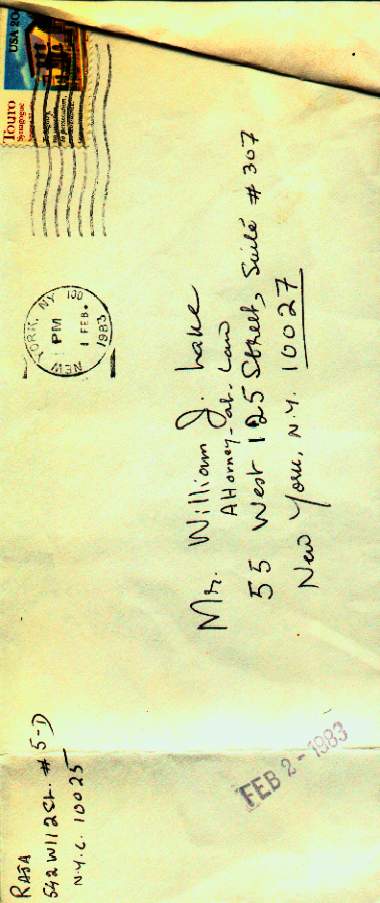 RAJA
542 W 112 St. # 5-D
N.Y.C. 10025
USA 20
Touro
Synagogue
NEW YORK, NY 100
PM
1 FEB
1983
Mr. William J. Lake
Attorney-at-Law
55 West 125 Street, Suite # 307
New York, N.Y. 10027
FEB 2 - 1983